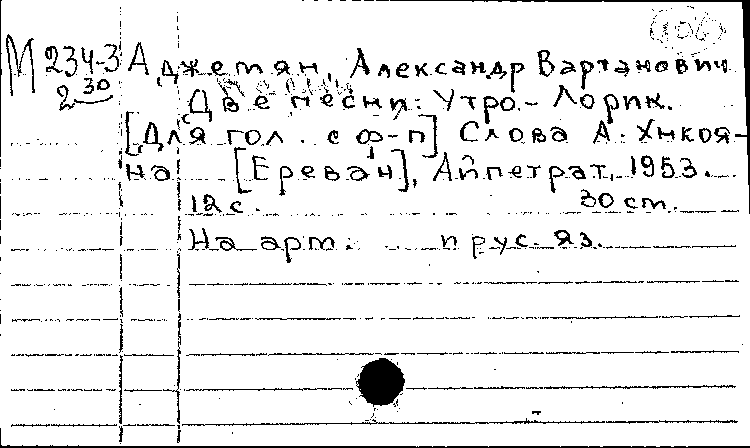 106
М 234-3 Аджемян, Александр Вартанович
2 30
Две песни: Утро. - Лорик.
[Для гол. с ф-п] Слова А. Хнкоя-
на [Ереван], Айпетрат, 1953.
12 с. 30 ст.
На арм. и рус. яз.